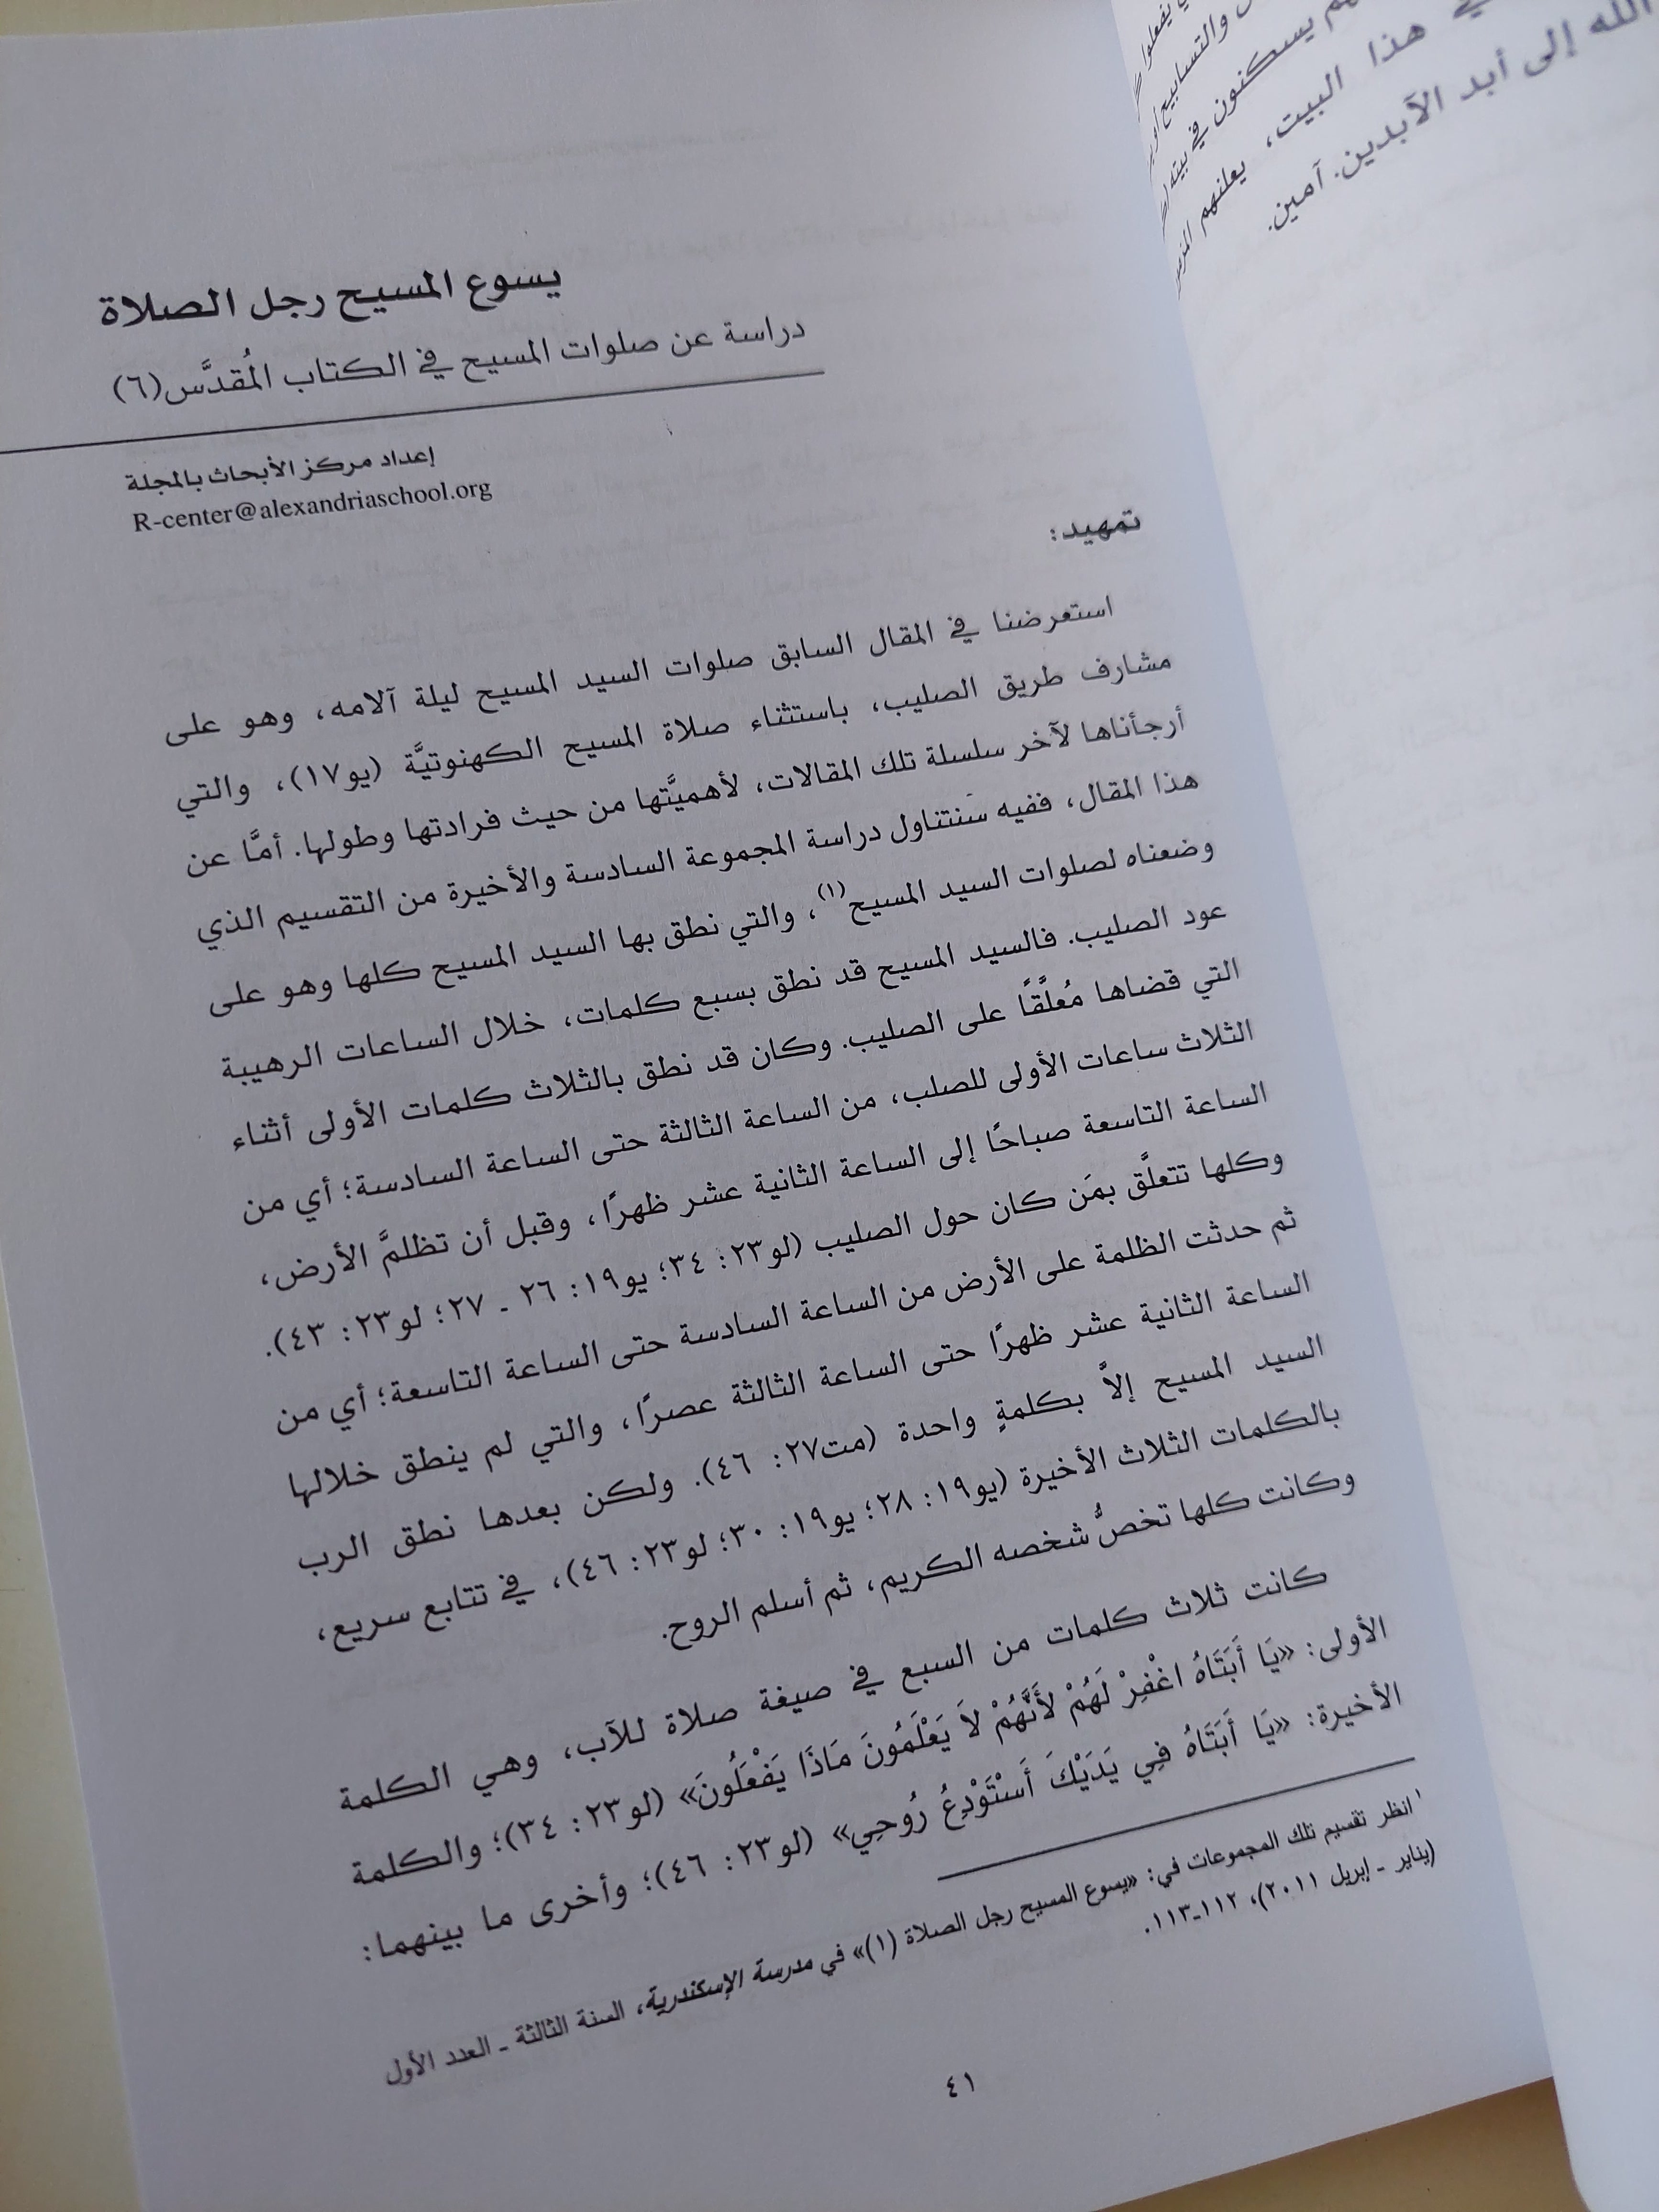 يسوع المسيح رجل الصلاة
دراسة عن صلوات المسيح في الكتاب المُقدَّس(٦)
إعداد مركز الأبحاث بالمجلة
R-center@alexandriaschool.org
تمهيد:
استعرضنا في المقال السابق صلوات السيد المسيح ليلة آلامه، وهو على
مشارف طريق الصليب، باستثناء صلاة المسيح الكهنوتيَّة (يو١٧)، والتي
أرجأناها لآخر سلسلة تلك المقالات، لأهميَّتها من حيث فرادتها وطولها. أمَّا عن
هذا المقال، ففيه سَنتناول دراسة المجموعة السادسة والأخيرة من التقسيم الذي
وضعناه لصلوات السيد المسيح(١)، والتي نطق بها السيد المسيح كلها وهو على
عود الصليب. فالسيد المسيح قد نطق بسبع كلمات، خلال الساعات الرهيبة
التي قضاها مُعلَّقًا على الصليب. وكان قد نطق بالثلاث كلمات الأولى أثناء
الثلاث ساعات الأولى للصلب، من الساعة الثالثة حتى الساعة السادسة؛ أي من
الساعة التاسعة صباحًا إلى الساعة الثانية عشر ظهرًا، وقبل أن تظلمَّ الأرض،
وكلها تتعلَّق بمَن كان حول الصليب (لو٢٣: ٣٤؛ يو١٩: ٢٦ ـ ٢٧؛ لو٢٣: ٤٣).
ثم حدثت الظلمة على الأرض من الساعة السادسة حتى الساعة التاسعة؛ أي من
الساعة الثانية عشر ظهرًا حتى الساعة الثالثة عصرًا، والتي لم ينطق خلالها
السيد المسيح إلاَّ بكلمةٍ واحدة (مت٢٧: ٤٦). ولكن بعدها نطق الرب
بالكلمات الثلاث الأخيرة (يو١٩: ٢٨؛ يو١٩: ٣٠؛ لو٢٣: ٤٦)، في تتابع سريع،
وكانت كلها تخصُّ شخصه الكريم، ثم أسلم الروح.
كانت ثلاث كلمات من السبع في صيغة صلاة للآب، وهي الكلمة
الأولى: «يَا أَبَتَاهُ اغْفِرْ لَهُمْ لأَنَّهُمْ لاَ يَعْلَمُونَ مَاذَا يَفْعَلُونَ» (لو٢٣: ٣٤)؛ والكلمة
الأخيرة: «يَا أَبَتَاهُ فِي يَدَيْكَ أَسْتَوْدِعُ رُوحِي» (لو٢٣: ٤٦)؛ وأخرى ما بينهما:
١ انظر تقسيم تلك المجموعات في: «يسوع المسيح رجل الصلاة (١)» في مدرسة الإسكندرية، السنة الثالثة ـ العدد الأول
(يناير ـ إبريل ٢٠١١)، ١١٢ـ١١٣.
٤١
يفعلوا
والتسابيح
يسكنون في بيته
هذا البيت، يعلنهم
الله إلى أبد الآبدين. آمين.